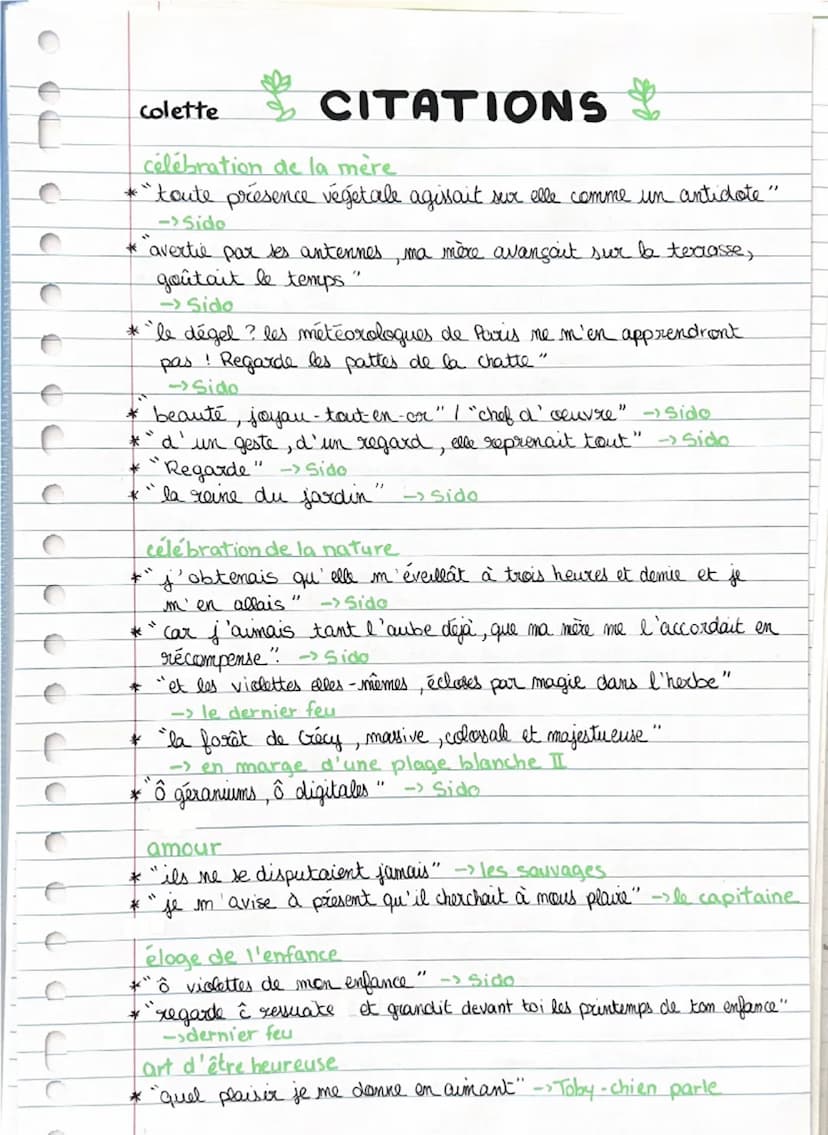 colette CITATIONS
célébration de la mère
* "toute présence végétale agissait sur elle comme un antidote"
-> Sido
* "avertie par ses antennes, ma mère avançait sur la terrasse,
goûtait le temps"
-> Sido
* "le dégel ? les météorologues de Paris ne m'en apprendront
pas ! Regarde les pattes de la chatte"
-> Sido
* "beauté, joyau-tout-en-or" / "chef d'oeuvre" -> Sido
* "d'un geste, d'un regard, elle reprenait tout" -> Sido
* "Regarde" -> Sido
* "la reine du jardin" -> Sido
célébration de la nature
* "j'obtenais qu'elle m'éveillât à trois heures et demie et je
m'en allais" -> Sido
* "car j'aimais tant l'aube déjà, que ma mère me l'accordait en
récompense". -> Sido
* "et les violettes elles-mêmes, écloses par magie dans l'herbe"
-> le dernier feu
* "la forêt de Crécy, massive, colossale et majestueuse"
-> en marge d'une plage blanche II
* "ô géraniums, ô digitales" -> Sido
amour
* "ils ne se disputaient jamais" -> les sauvages
* "je m'avise à présent qu'il cherchait à nous plaire" -> le capitaine
éloge de l'enfance
* "ô violettes de mon enfance" -> Sido
* "regarde et grandit devant toi les printemps de ton enfance"
-> dernier feu
art d'être heureuse
* "quel plaisir je me donne en aimant" -> Toby-chien parle